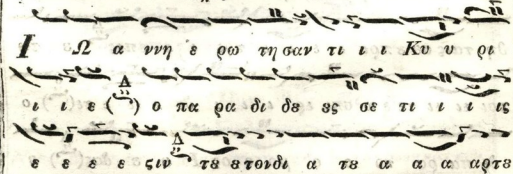 Ι Ω α ννη ε ρω τη σαν τι ι ι Κυ υ ρι
ι ι ε ( ) ο πα ρα δι δȣ ȣς σε τι ι ι ις
ε ε ε ε ξιν τȣ ȣτονδι α τȣ α α α αρτȣ